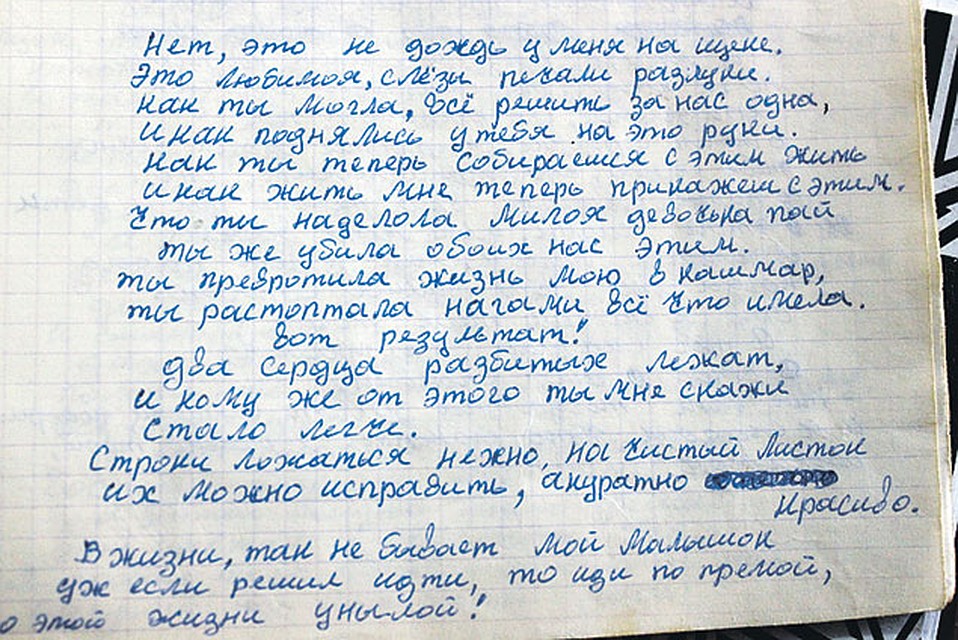 Нет, это не дождь у меня на щеке.
Это любимоя, слёзы печали разлуки.
как ты могла, всё решить за нас одна,
и как поднялись у тебя на это руки.
как ты теперь собираешся с этим жить
и как жить мне теперь прикажеш с этим.
Что ты наделола милоя девочька пай
ты же убила обоих нас этим.
ты превротила жизнь мою в кашмар,
ты растоптала нагами всё что имела.
вот результат!
два сердца разбитых лежат,
и кому же от этого ты мне скажи
стало легче.
Строки ложаться нежно, на чистый листок
их можно исправить, акуратно
красиво.
В жизни, так не бывает мой малышок
уж если решил идти, то иди по премой,
о этой жизни унылой!